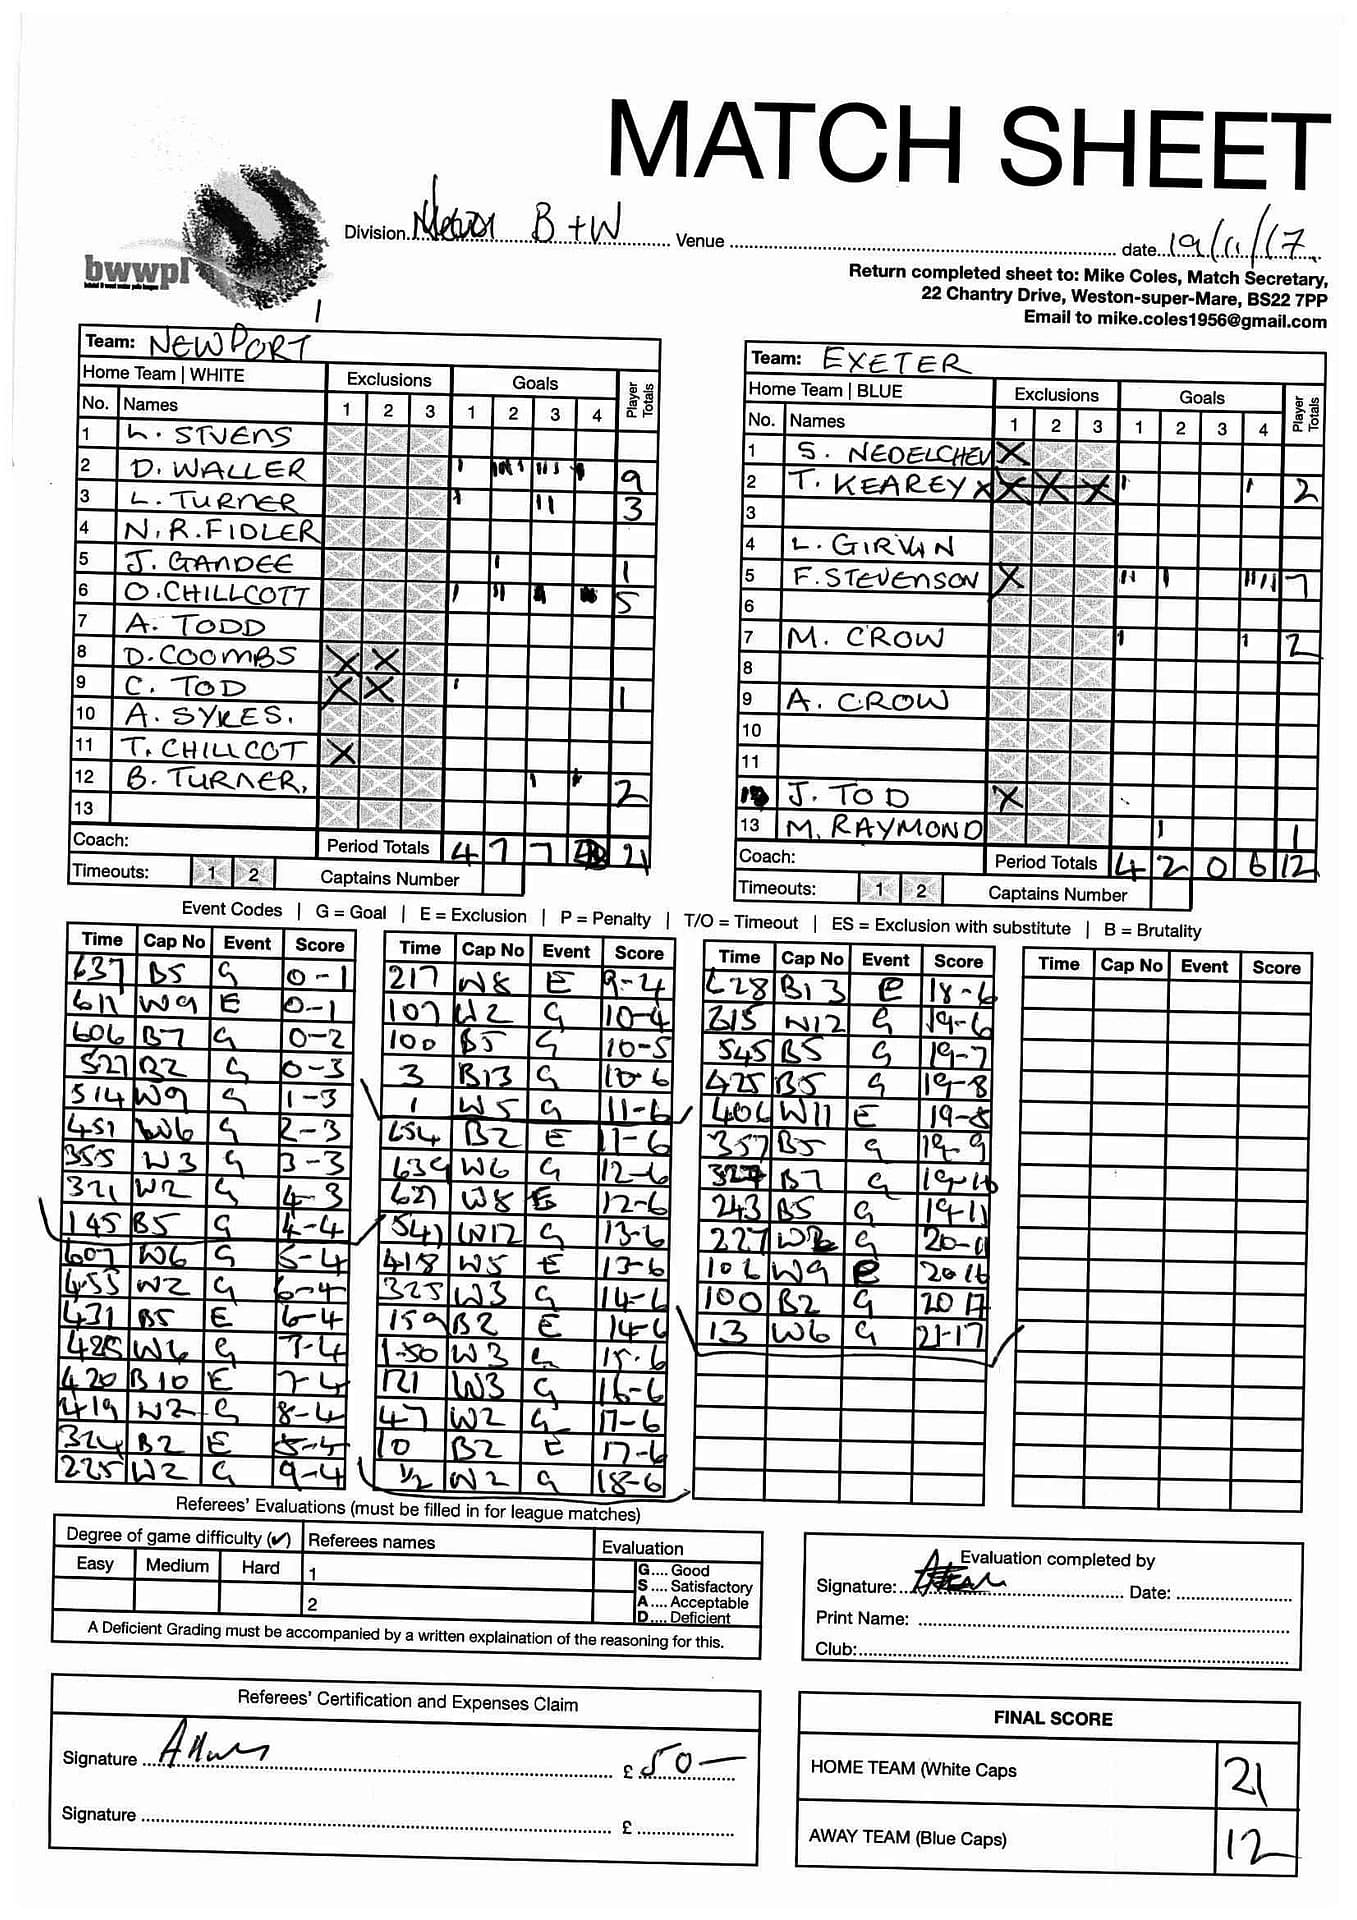 MATCH SHEET
bwwpl
Division Newport B+W Venue date 19/11/17
Return completed sheet to: Mike Coles, Match Secretary,
22 Chantry Drive, Weston-super-Mare, BS22 7PP
Email to mike.coles1956@gmail.com
Team: NEWPORT
Home Team | WHITE Exclusions Goals Player Totals
No. Names 1 2 3 1 2 3 4
1 L. STVENS
2 D. WALLER 9
3 L. TURNER 3
4 N.R. FIDLER
5 J. GANDEE 1
6 O. CHILLCOTT 5
7 A. TODD
8 D. COOMBS X X
9 C. TOD X X 1
10 A. SYKES.
11 T. CHILLCOT X
12 B. TURNER, 2
13
Coach: Period Totals 4 7 7 21
Timeouts: 1 2 Captains Number
Team: EXETER
Home Team | BLUE Exclusions Goals Player Totals
No. Names 1 2 3 1 2 3 4
1 S. NEDELCHEV X
2 T. KEAREY X X X X 2
3
4 L. GIRVAN
5 F. STEVENSON X 7
6
7 M. CROW 2
8
9 A. CROW
10
11
J. TOD X
13 M. RAYMOND 1
Coach: Period Totals 4 2 0 6 12
Timeouts: 1 2 Captains Number
Event Codes | G = Goal | E = Exclusion | P = Penalty | T/O = Timeout | ES = Exclusion with substitute | B = Brutality
Time Cap No Event Score
637 B5 G 0-1
611 W9 E 0-1
606 B7 G 0-2
527 B2 G 0-3
514 W9 G 1-3
451 W6 G 2-3
355 W3 G 3-3
321 W2 G 4-3
145 B5 G 4-4
607 W6 G 5-4
455 W2 G 6-4
431 B5 E 6-4
428 W6 G 7-4
420 B10 E 7-4
419 W2 G 8-4
324 B2 E
225 W2 G 9-4
Time Cap No Event Score
217 W8 E 9-4
107 W2 G 10-4
100 B5 G 10-5
3 B13 G 10-6
1 W5 G 11-6
654 B2 E 11-6
639 W6 G 12-6
627 W8 E 12-6
541 W12 G 13-6
418 W5 E 13-6
325 W3 G 14-6
159 B2 E 14-6
1-50 W3 G 15-6
121 W3 G 16-6
47 W2 G 17-6
10 B2 E 17-6
1/2 W2 G 18-6
Time Cap No Event Score
628 B13 E 18-6
615 W12 G 19-6
545 B5 G 19-7
425 B5 G 19-8
406 W11 E 19-8
357 B5 G 19-9
B7 G 19-10
243 B5 G 19-11
227 G 20-11
106 W9 E 20 11
100 B2 G 20 12
13 W6 G 21-12
Time Cap No Event Score
Referees' Evaluations (must be filled in for league matches)
Degree of game difficulty (✓) Referees names Evaluation
Easy Medium Hard 1
2
G .... Good
S .... Satisfactory
A .... Acceptable
D .... Deficient
A Deficient Grading must be accompanied by a written explaination of the reasoning for this.
Evaluation completed by
Signature: Date:
Print Name:
Club:
Referees' Certification and Expenses Claim
Signature £ 50 —
Signature £
FINAL SCORE
HOME TEAM (White Caps 21
AWAY TEAM (Blue Caps) 12